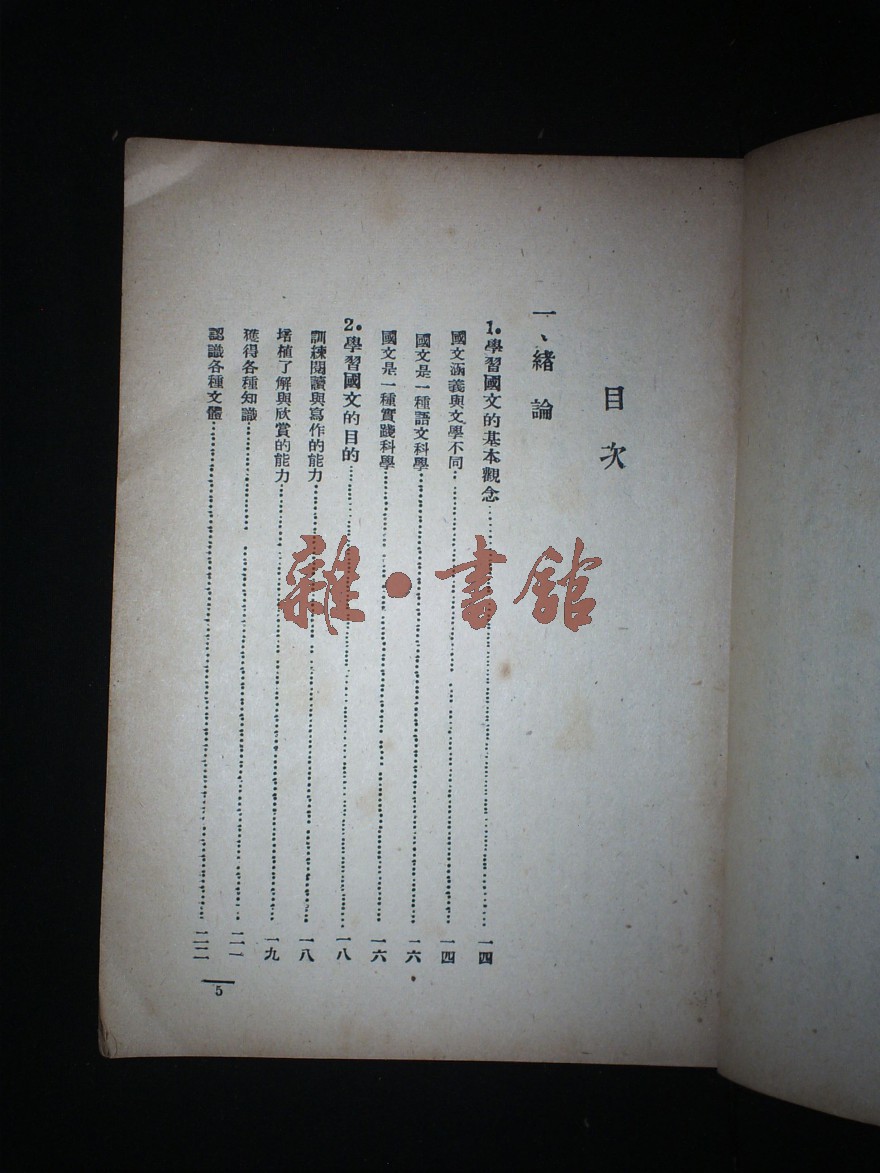 目次
一、緒論
1.學習國文的基本觀念……一四
國文涵義與文學不同……一四
國文是一種語文科學……一六
國文是一種實踐科學……一六
2.學習國文的目的……一八
訓練閱讀與寫作的能力……一八
培植了解與欣賞的能力……一九
獲得各種知識……二一
認識各種文體……二二
5
雜·書館